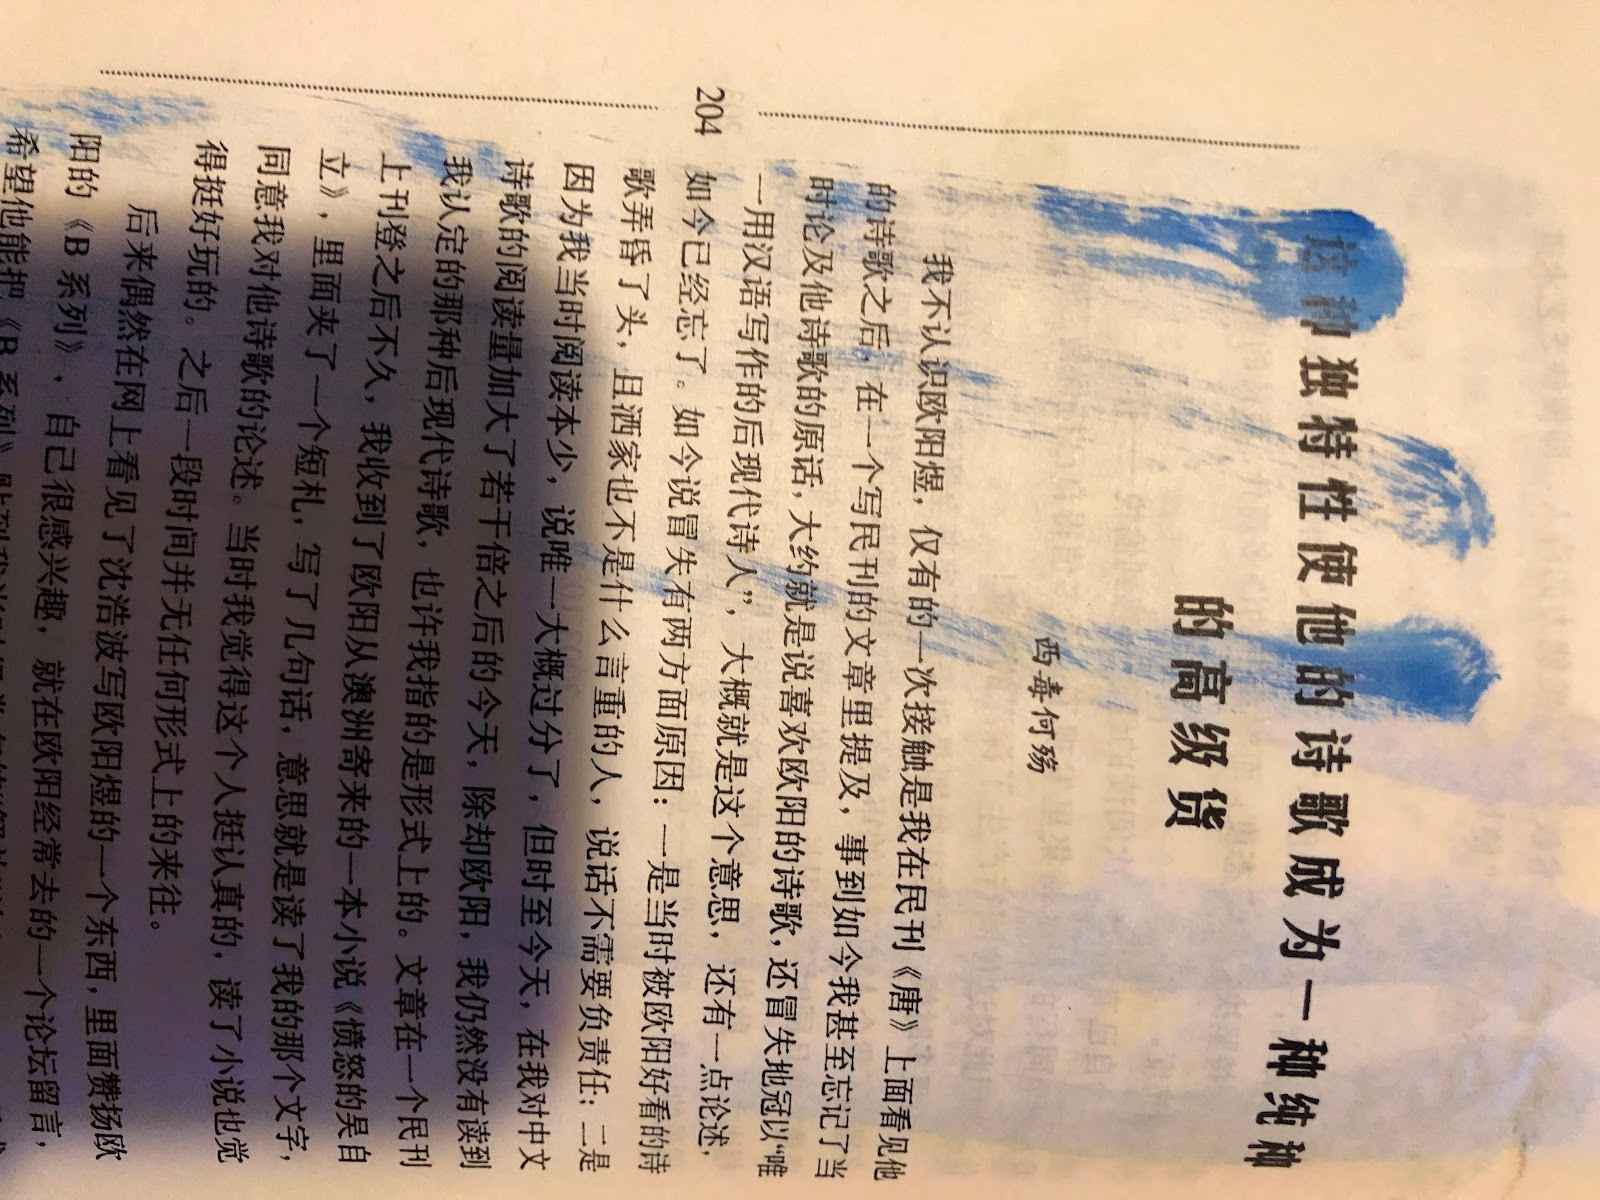 204
这种独特性使他的诗歌成为一种纯种
的高级货
西毒何殇
我不认识欧阳煜，仅有的一次接触是我在民刊《唐》上面看见他
的诗歌之后，在一个写民刊的文章里提及，事到如今我甚至忘记了当
时论及他诗歌的原话，大约就是说喜欢欧阳的诗歌，还冒失地冠以“唯
一用汉语写作的后现代诗人”，大概就是这个意思，还有一点论述，
如今已经忘了。如今说冒失有两方面原因：一是当时被欧阳好看的诗
歌弄昏了头，且洒家也不是什么言重的人，说话不需要负责任；二是
因为我当时阅读本少，说唯一大概过分了，但时至今天，在我对中文
诗歌的阅读量加大了若干倍之后的今天，除却欧阳，我仍然没有读到
我认定的那种后现代诗歌，也许我指的是形式上的。文章在一个民刊
上刊登之后不久，我收到了欧阳从澳洲寄来的一本小说《愤怒的吴自
立》，里面夹了一个短札，写了几句话，意思就是读了我的那个文字，
同意我对他诗歌的论述。当时我觉得这个人挺认真的，读了小说也觉
得挺好玩的。之后一段时间并无任何形式上的来往。
后来偶然在网上看见了沈浩波写欧阳煜的一个东西，里面赞扬欧
阳的《B 系列》，自己很感兴趣，就在欧阳经常去的一个论坛留言，
希望他能把《B 系列》